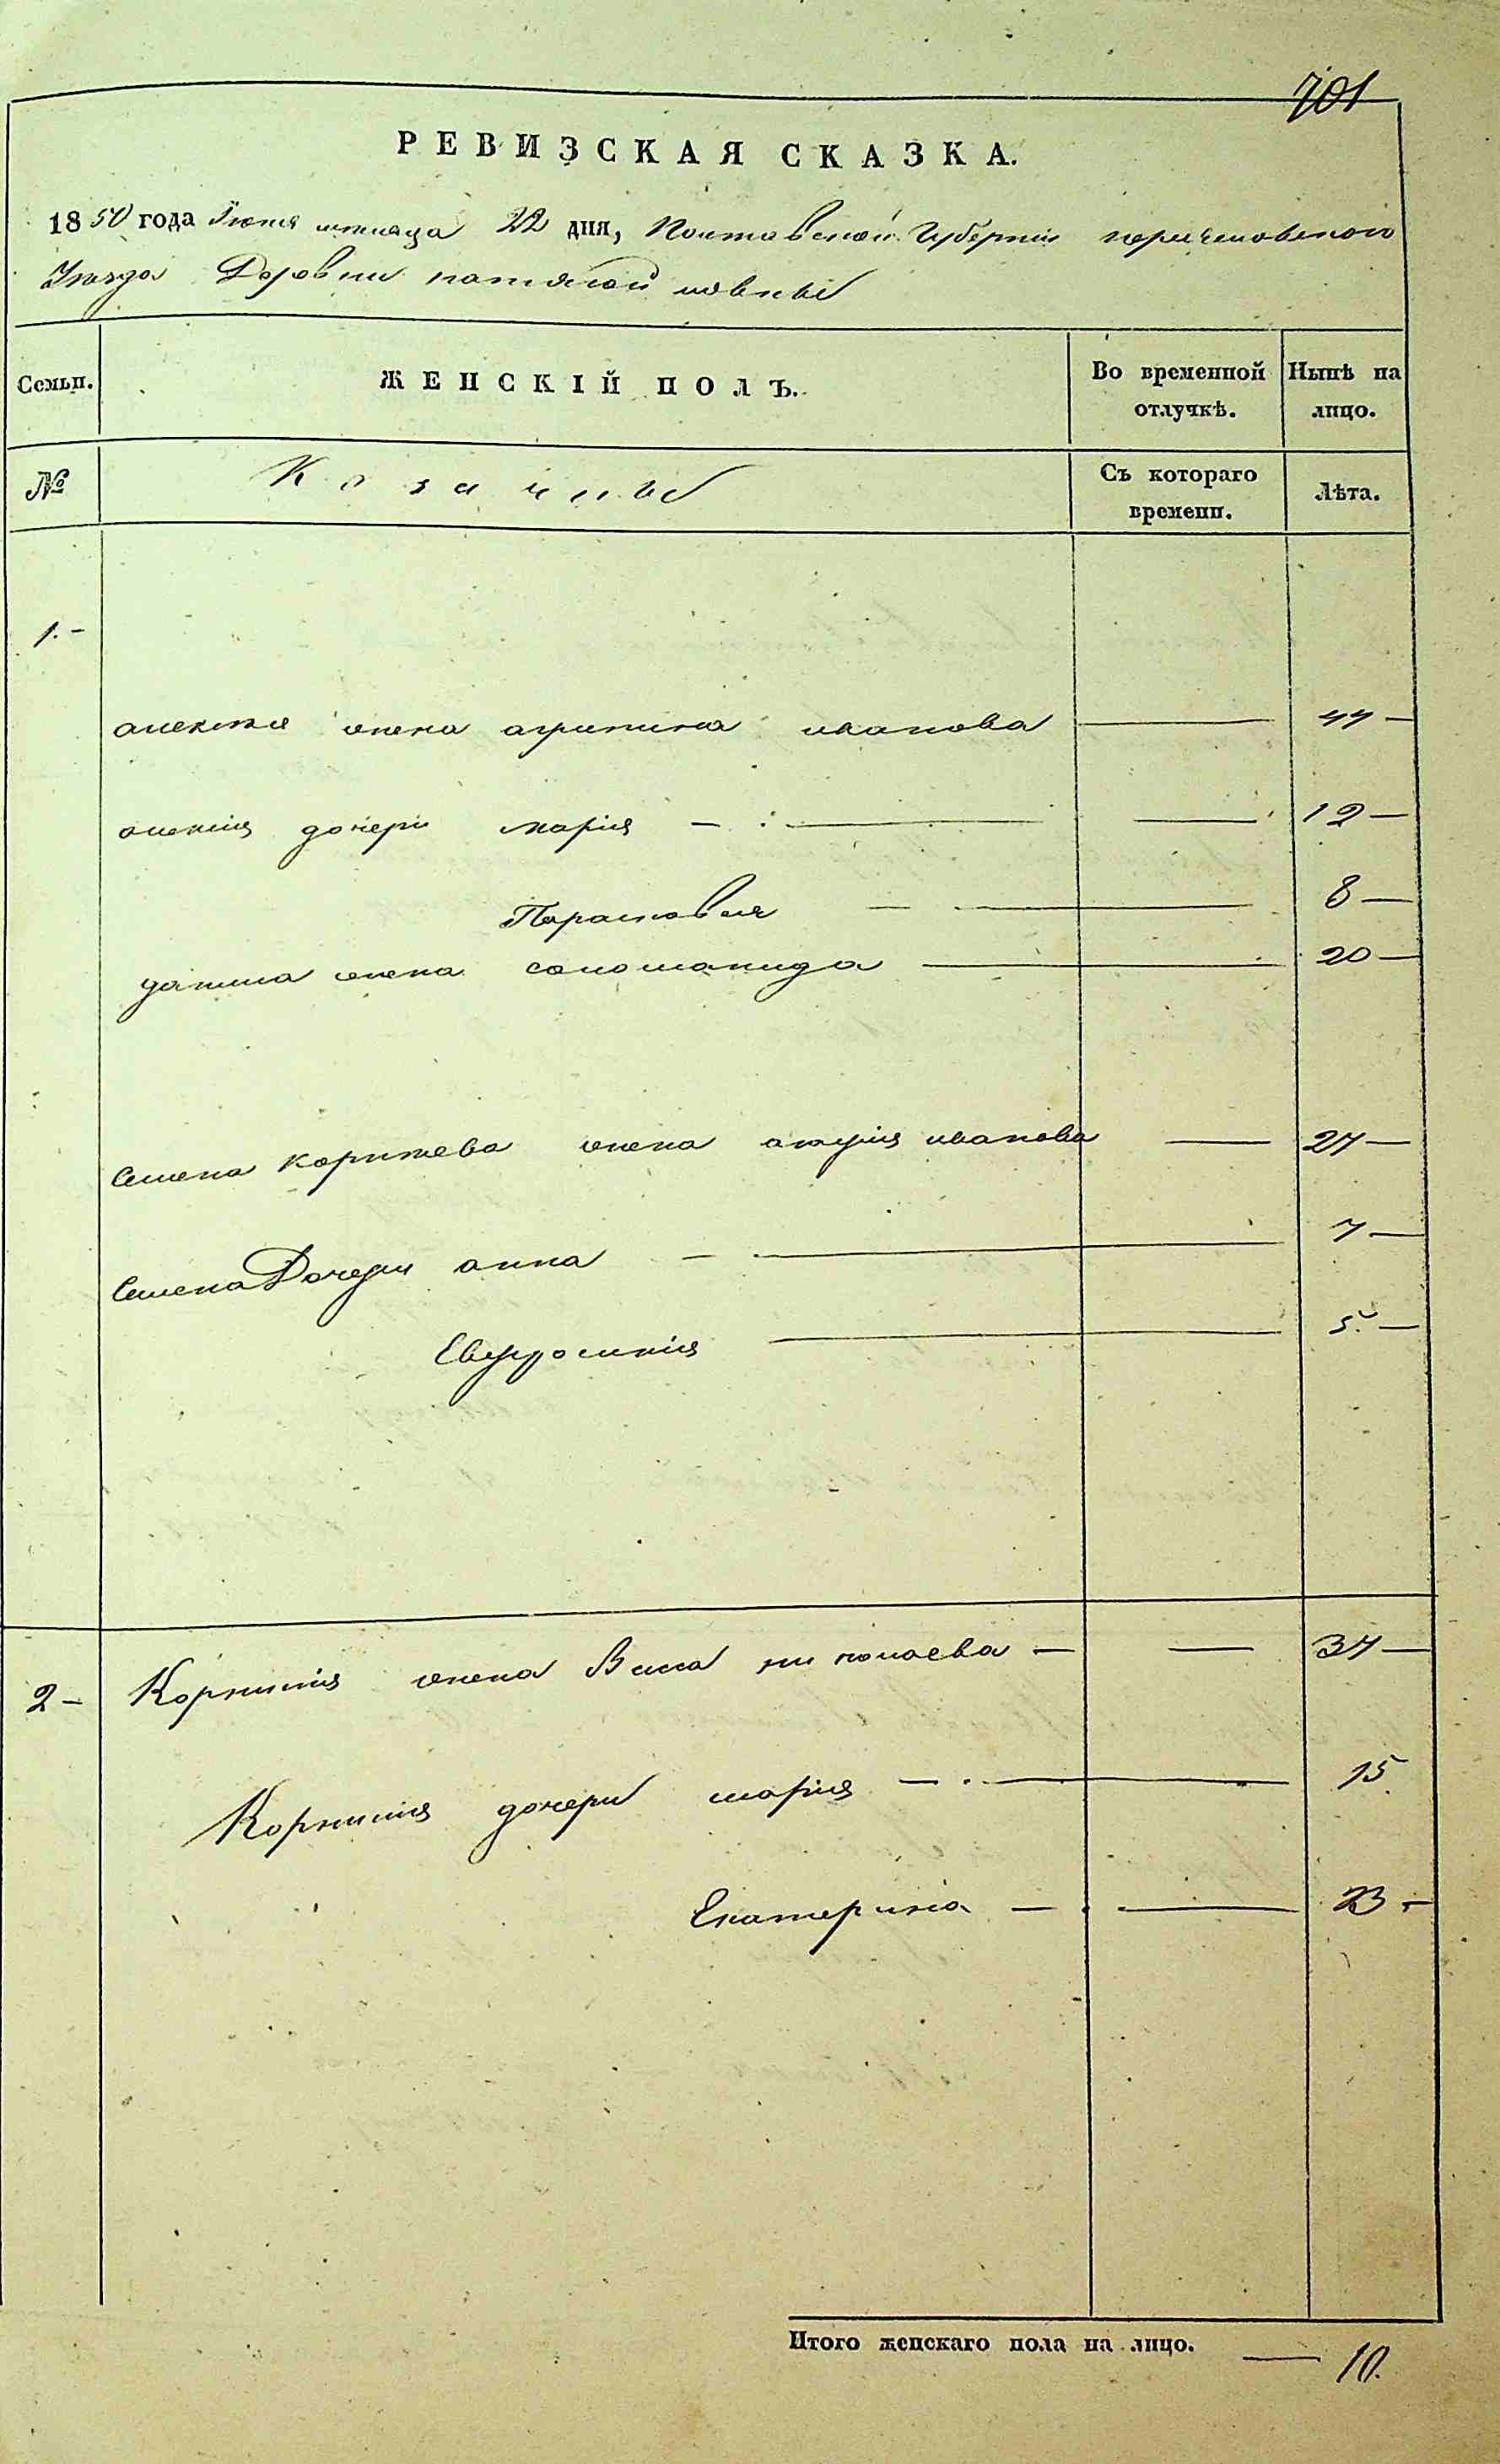 701
РЕВИЗСКАЯ СКАЗКА.
1850 года Іюня месяца 22 дня, Полтавской Губерніи
Уезда Деревни
Семьи. ЖЕНСКІЙ ПОЛЪ. Во временной отлучкѣ. Нынѣ на лицо.
№ Козачны Съ котораго времени. Лѣта.
1.-
жена агрипина иванова — 44 —
алексія дочери марія — — 12 —
Парасковия — 8 —
жена соломанида — 20 —
Семена жена иванова — 27 —
Семена Дочери анна — 7 —
Евфросинія — 5. —
2 - Корнилія жена Васса николаева — — 37 —
Корнилія дочери марія — 15
Екатерина — — 13 -
Итого женскаго пола на лицо. — 10.